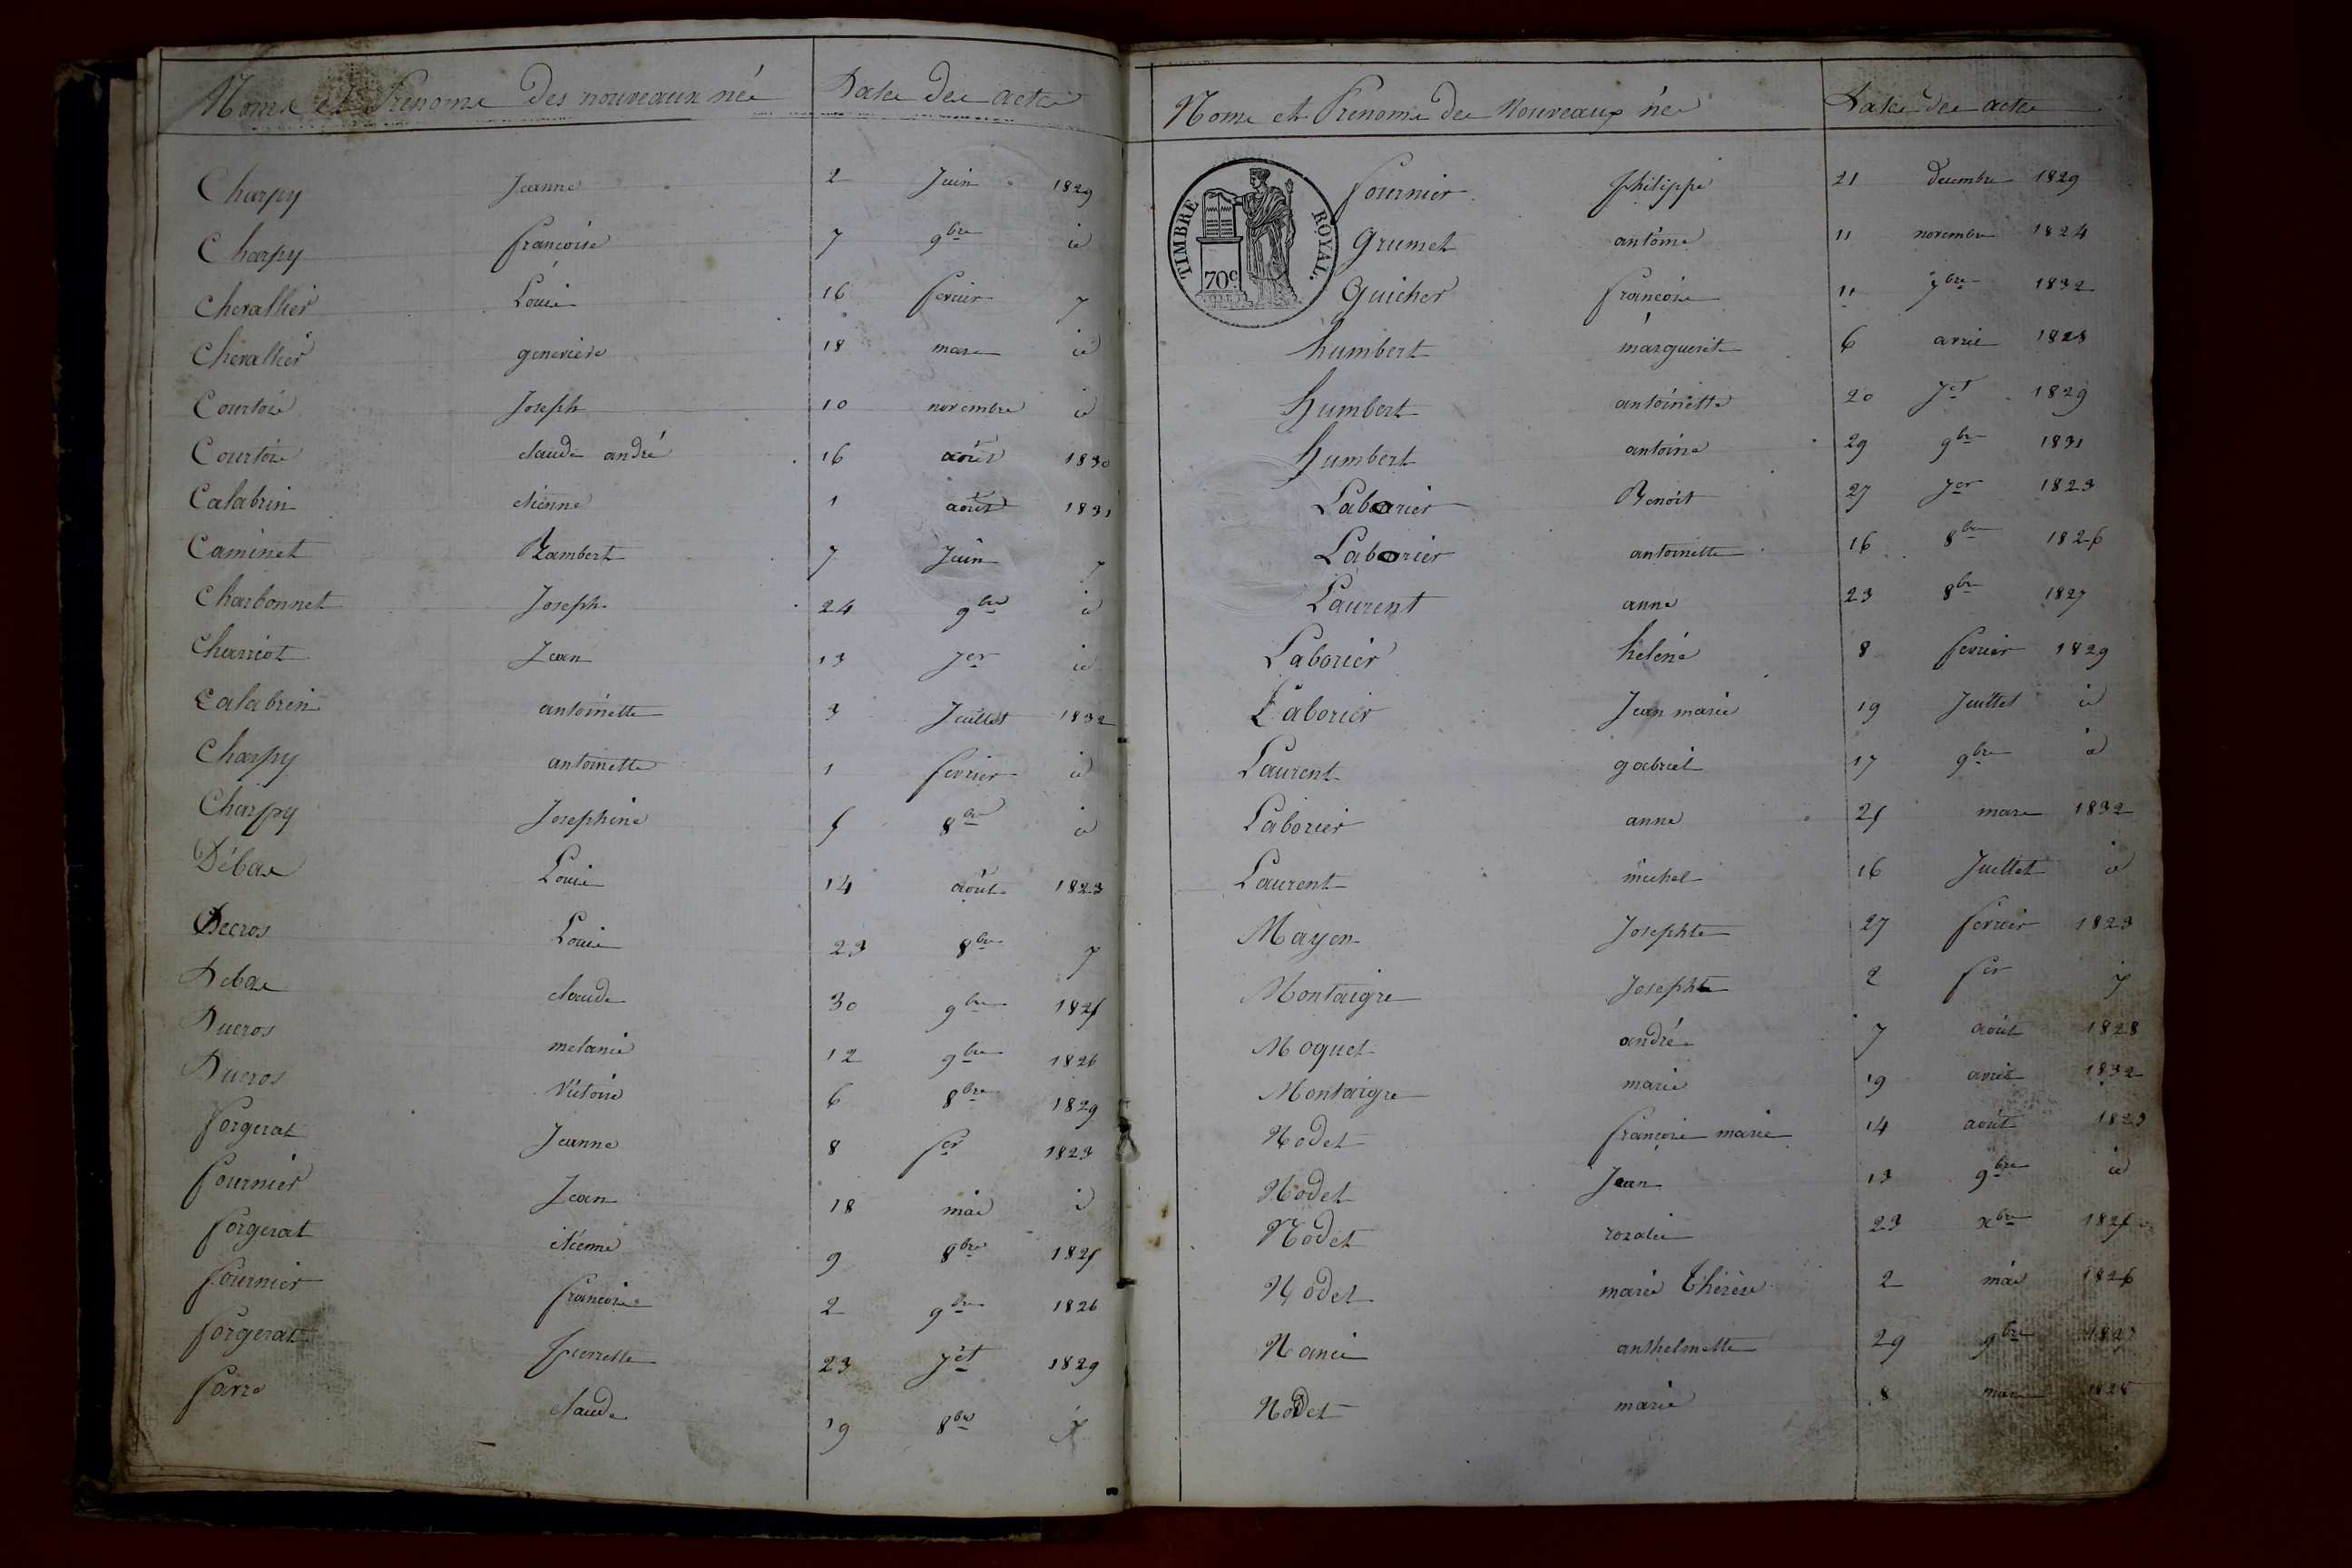 Noms et Prenoms des nouveaux nés Date des actes
Charpy Jeanne 2 Juin 1829
Charpy françoise 7 9bre id
Chevallier Louis 16 fevrier
Chevallier genevieve 18 mars id
Courtois Joseph 10 novembre id
Courtois claude andré 16 août 1830
Calabrin etienne 1 août 1831
Caminet Rambert 7 Juin
Charbonnet Joseph 24 9bre id
Charriot Jean 13 Jer id
Calabrin antoinette 3 Juillet 1832
Charpy antoinette 1 fevrier id
Charpy Josephine 5 8bre id
Débas Louis 14 août 1823
Decros Louis 23 8bre
Debas claude 30 9bre 1825
Ducros melanie 12 9bre 1826
Ducros Victoire 6 8bre 1829
forgerat Jeanne 8 fer 1823
fournier Jean 18 mai id
forgerat étienne 9 8bre 1825
fournier françoise 2 9bre 1826
forgerat pierrette 23 Jet 1829
farre claude 19 8bre
Noms et Prenoms des Nouveaux nés Dates des actes
TIMBRE ROYAL.
70c
fournier philippe 21 decembre 1829
grumet antoine 11 novembre 1824
guicher françoise 11 7bre 1832
humbert marguerite 6 avril 1828
humbert antoinette 20 Jet 1829
humbert antoine 29 9bre 1831
Laborier Benoit 27 Jer 1823
Laborier antoinette 16 8bre 1826
Laurent anne 23 8bre 1827
Laborier heléne 8 fevrier 1829
Laborier Jean marie 19 Juillet id
Laurent gabriel 17 9bre id
Laborier anne 25 mars 1832
Laurent michel 16 Juillet id
Mayen Josephte 27 fevrier 1823
Montaigre Josephte 2 fer
Moquet andré 7 août 1828
Montaigre marie 19 avril 1832
Nodet françoise marie 14 août 1823
Nodet Jean 13 9bre id
Nodet rozalie 23 xbre 1825
Nodet marie thérèse 2 mai 1826
Nanci anthelmette 29 9bre 1827
Nodet marie 8 mars 1828